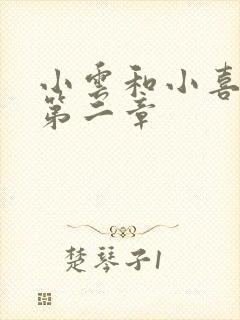 小雲和小喜
第二章
楚琴子1